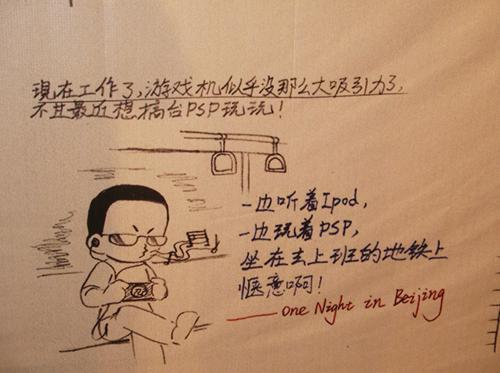 現在工作了,游戏机似乎没那么大吸引力了,
不过最近想搞台PSP玩玩!
一边听着Ipod,
一边玩着PSP,
坐在去上班的地铁上
惬意啊!
—— One Night in Beijing